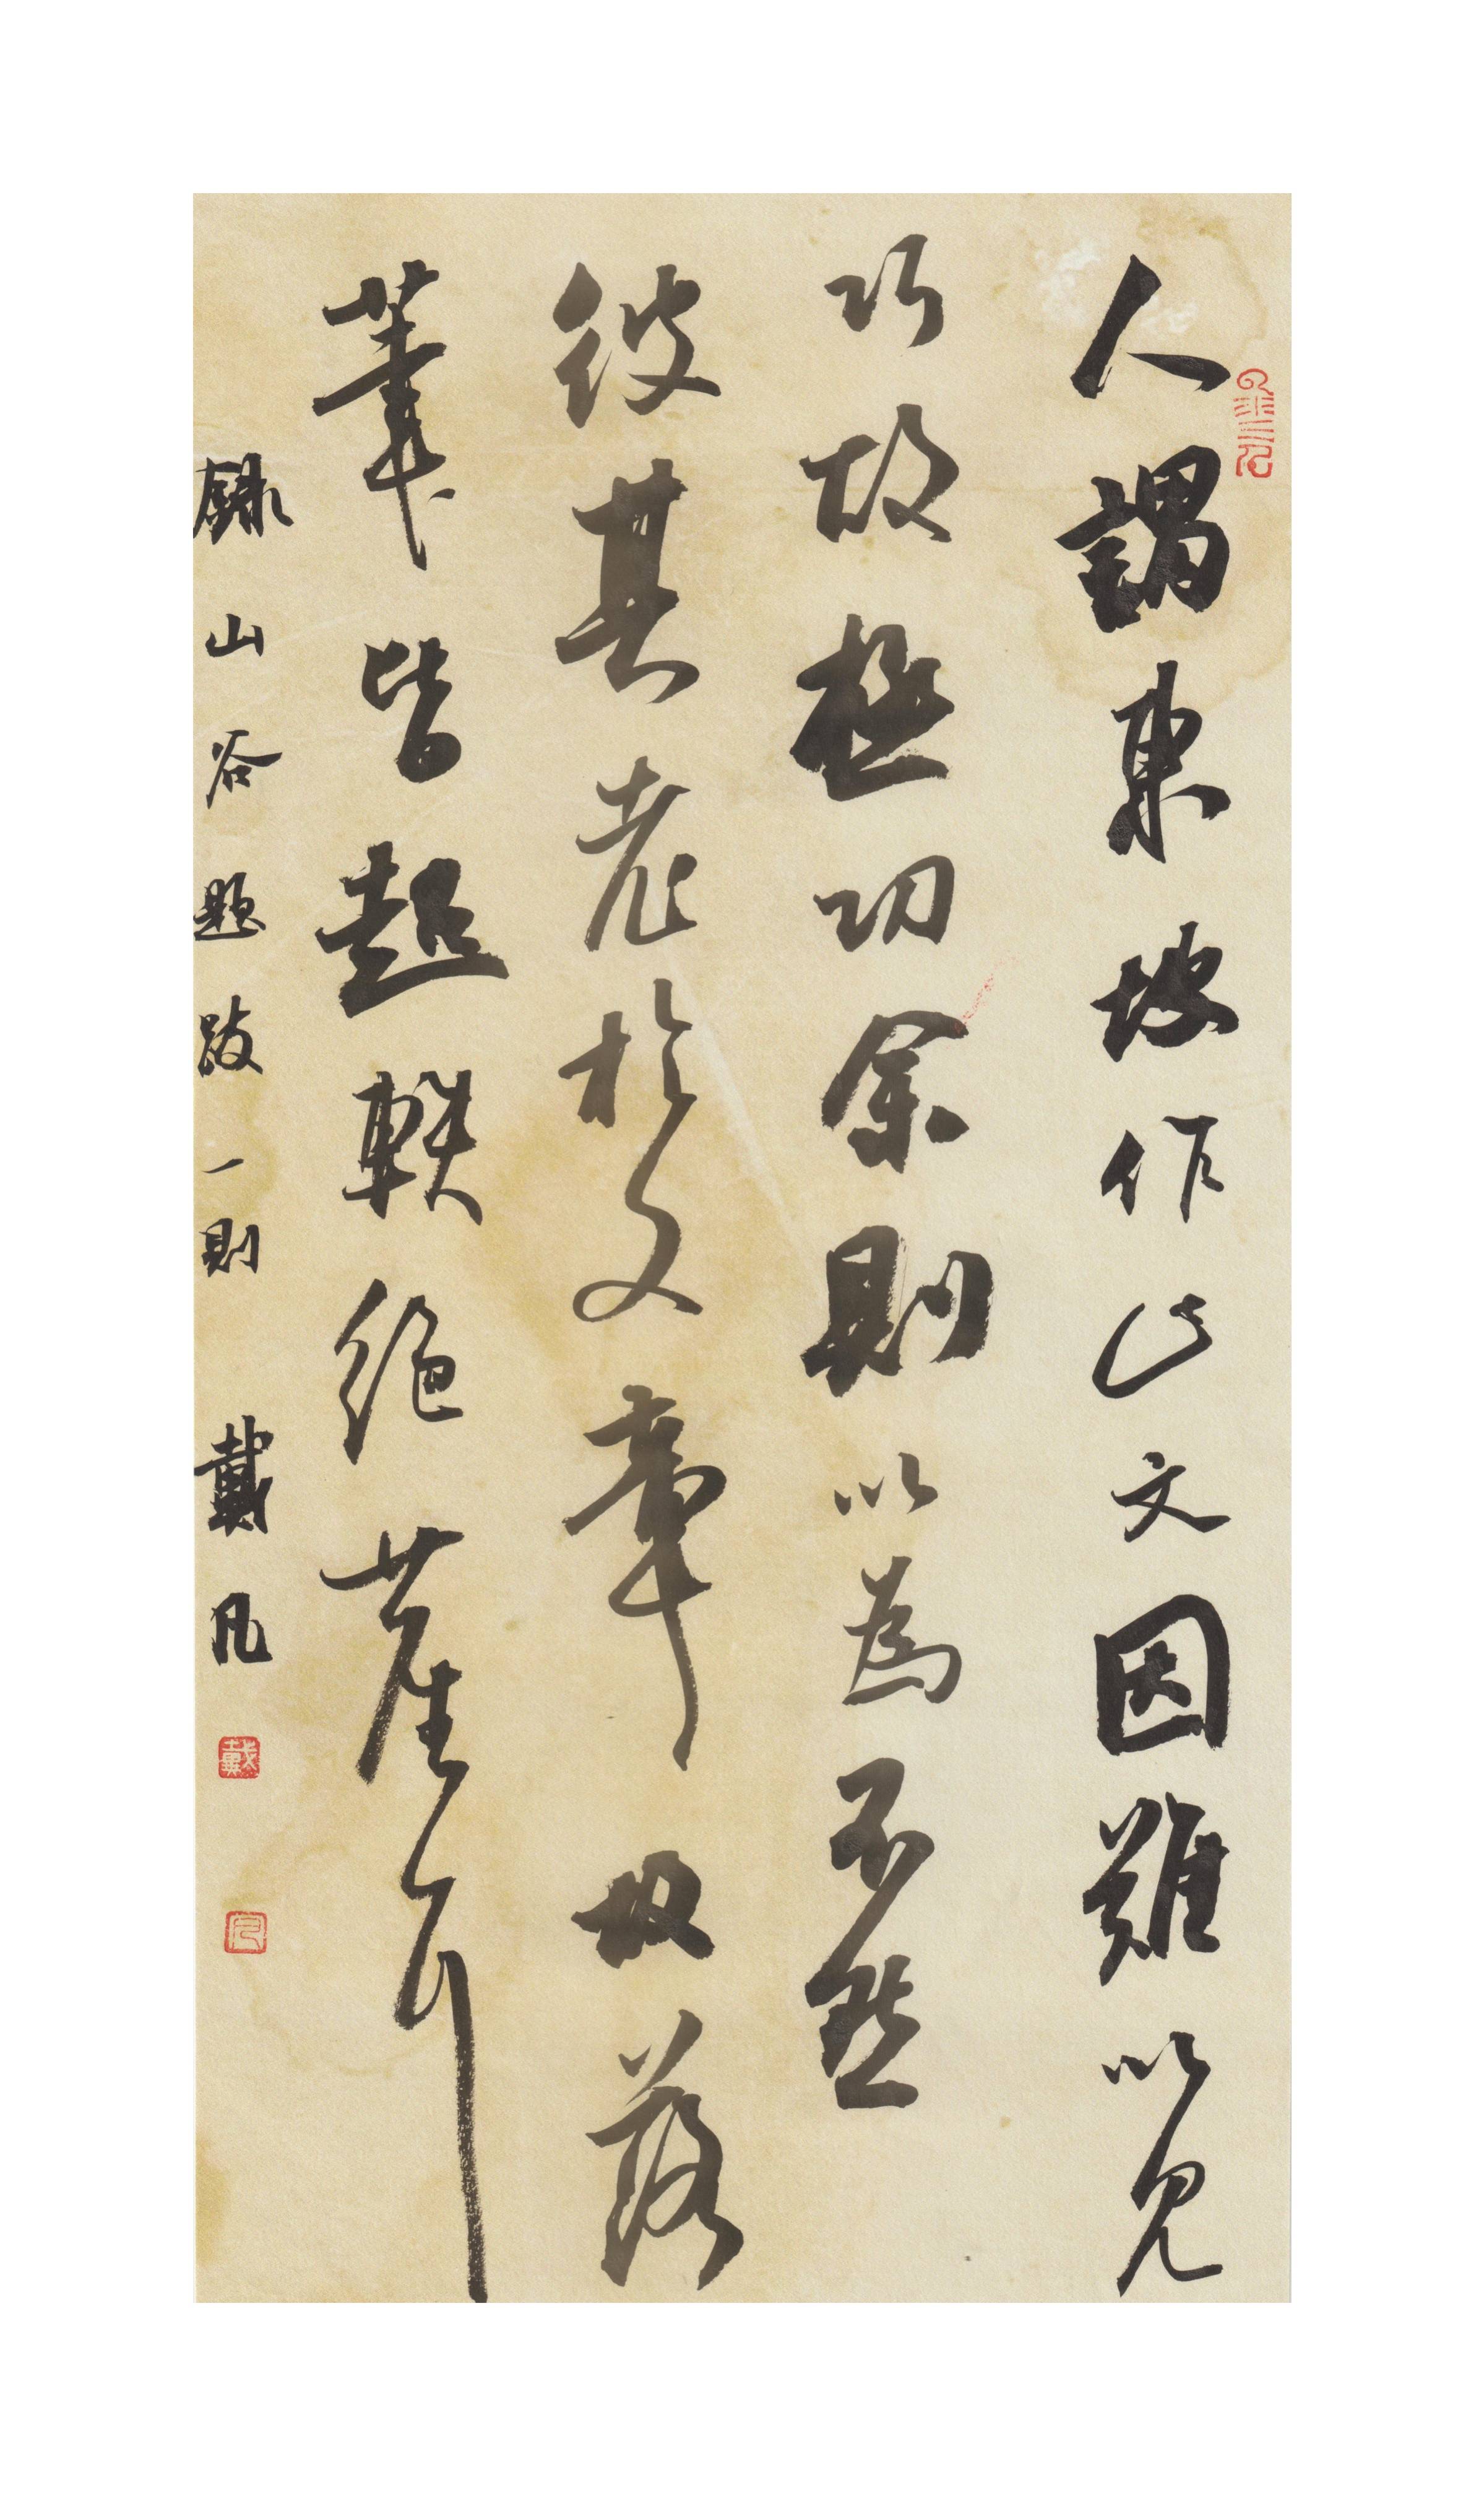 人謂東坡作此文因難以見
巧故極功余則以為不然
彼其老於文章故落
筆皆超軼絕塵耳
錄山谷題跋一則 戴凡
戴
凡